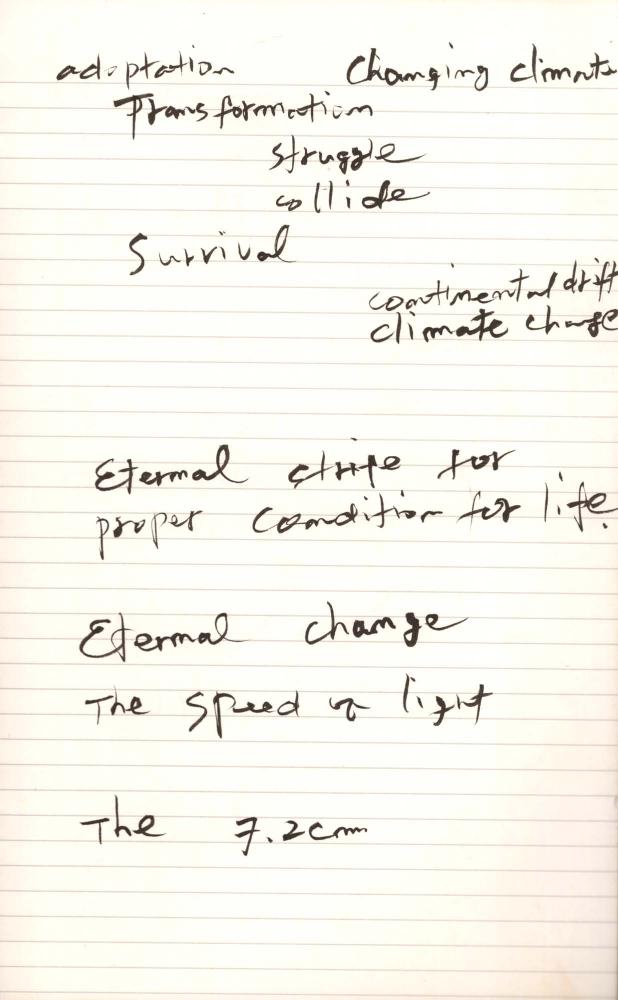 adaptation Changing climate
Transformation
struggle
collide
Survival
continental drift
climate change
Eternal strife for
proper condition for life.
Eternal change
The speed of light
The 7.2cm